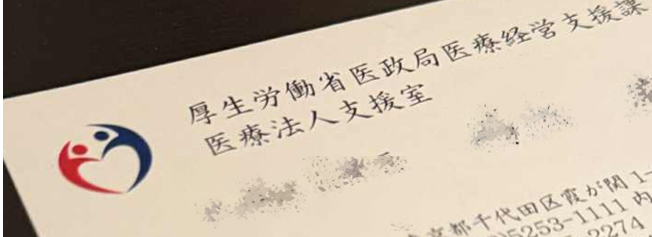 厚生労働省医政局医療経営支援課
医療法人支援室
京都千代田区霞が関 1-
)5253-1111 内
2274